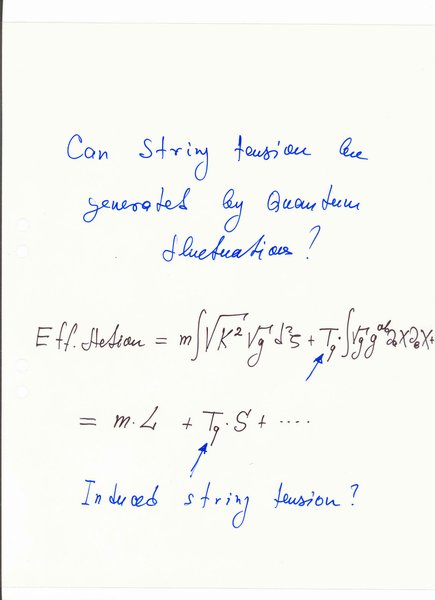 Can String tension be
generated by Quantum
fluctuations?
Eff. Action = m∫√K² √g d²ξ + T_q·∫√g g^{ab}∂_a X ∂_b X +
= m·L + T_q·S + ····
Induced string tension?